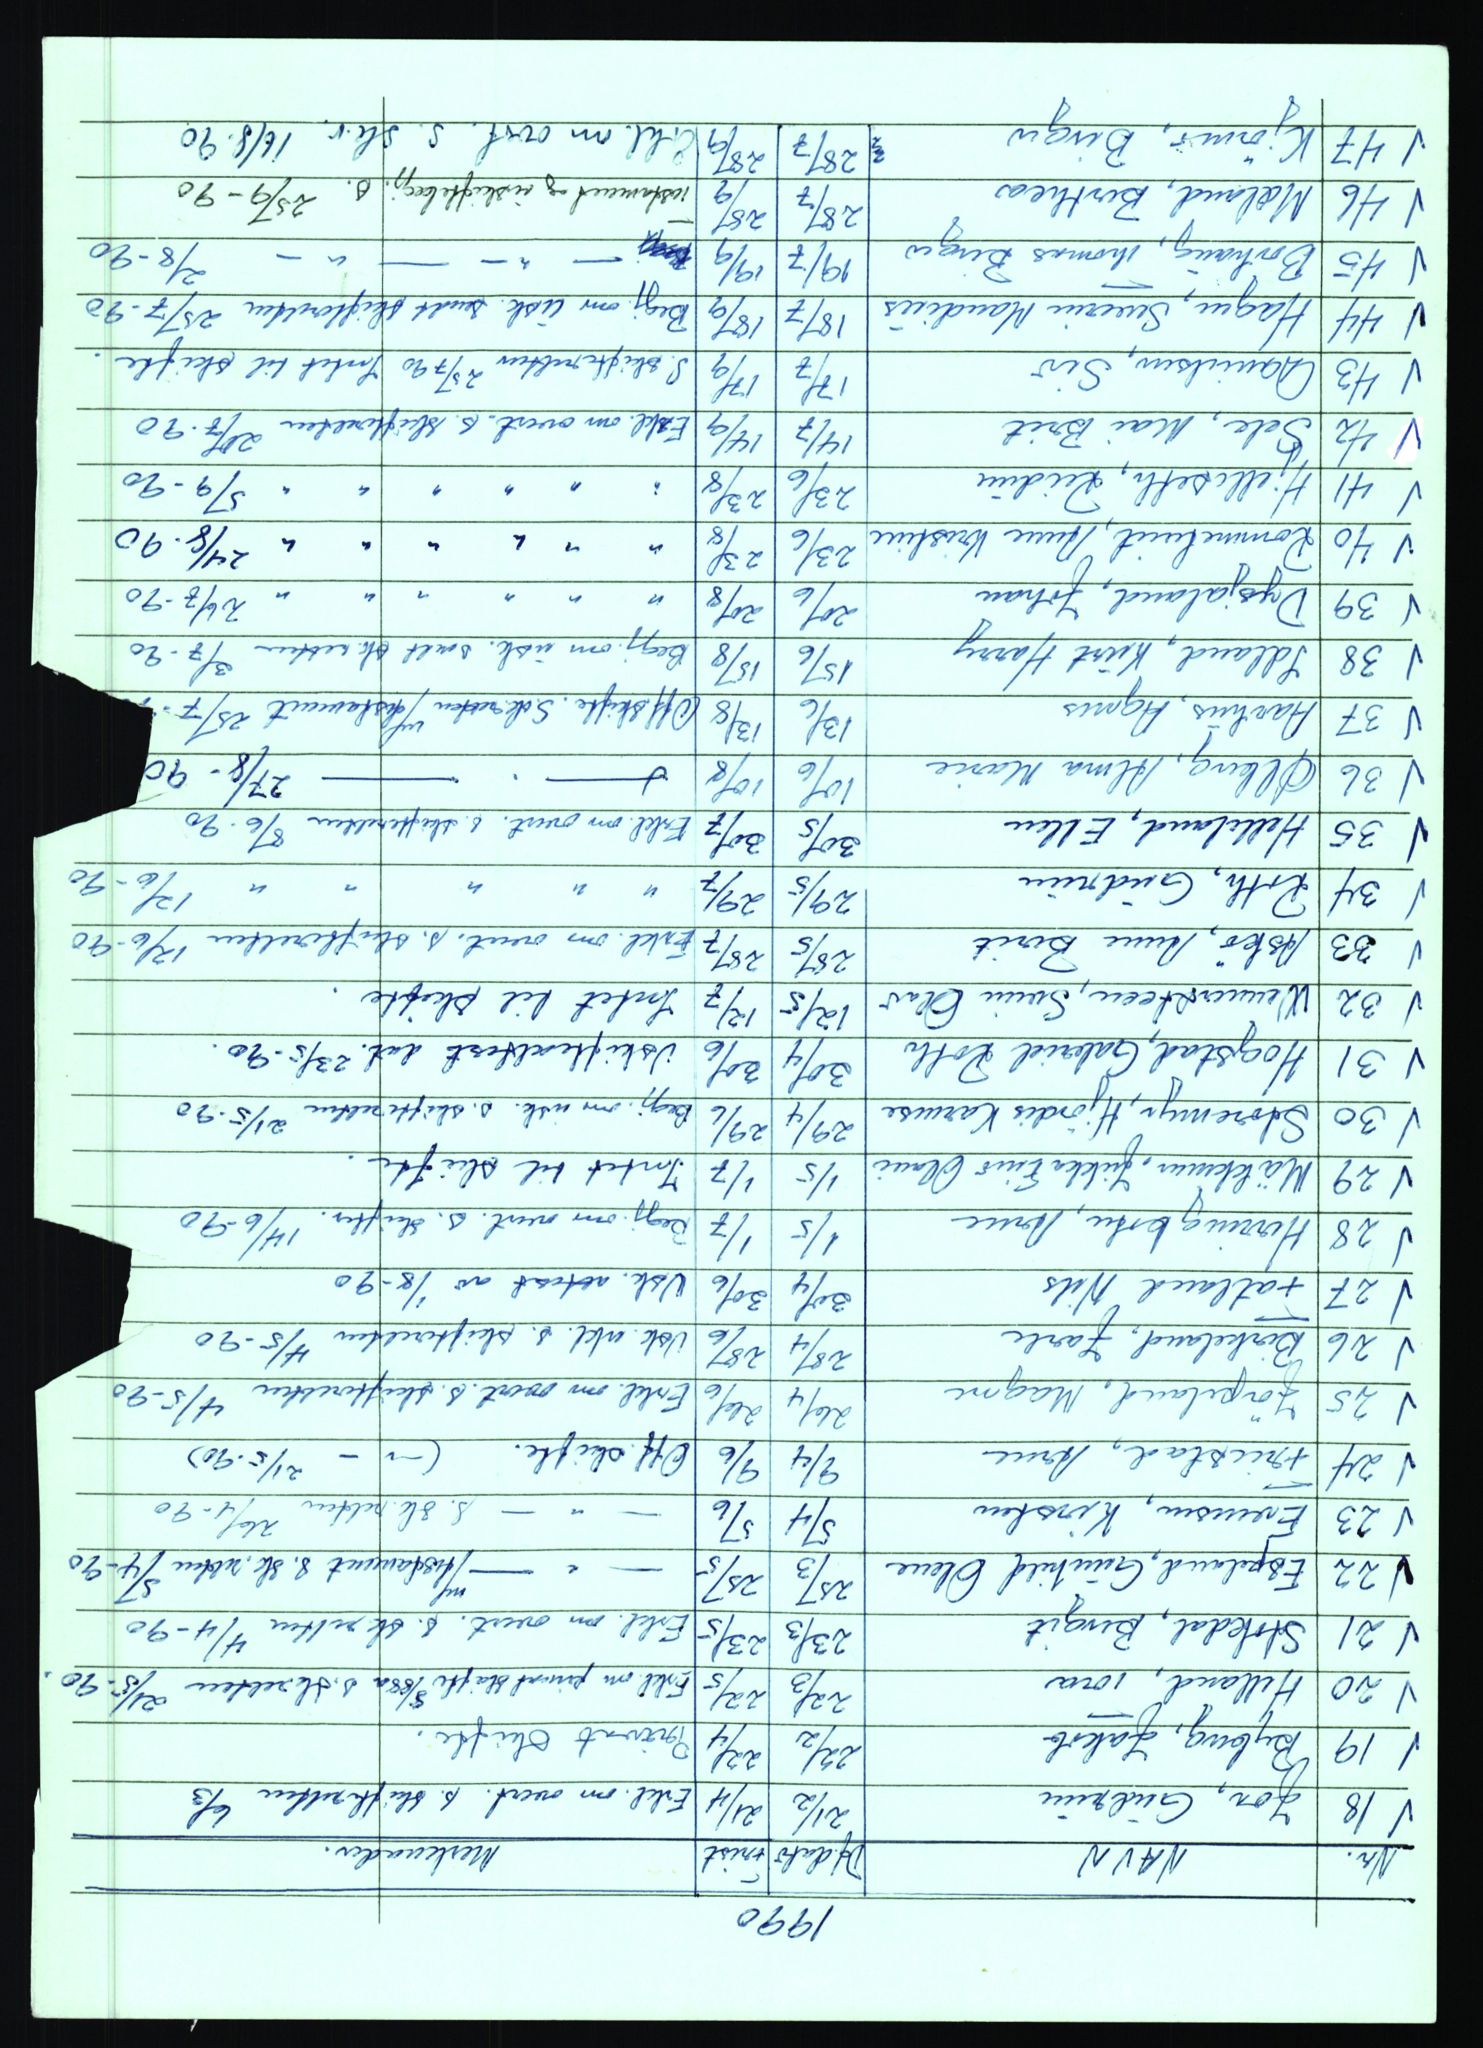 1990
Nr. NAVN Df.dato Frist Merknader.
V 18 Jor, Gudrun 21/2 21/4 Erkl. om overt. s. skifteretten 6/3
V 19 Byberg, Jakob 22/2 22/4 Privat skifte.
V 20 Helland, Tora 22/3 22/5 Erkl. om privat skifte s. skretten 21/5-90.
V 21 Stokdal, Birgit 23/3 23/5 Erkl. om overt. s. sk.retten 4/4-90
V 22 Espeland, Gunhild Olene 25/3 25/5 — " — m/testament s. sk.retten 5/4-90
V 23 Evensen, Kirsten 5/4 5/6 — " — s. sk.retten 26/4-90
V 24 Fristad, Arne 9/4 9/6 Off. skifte. (— " — 21/5-90)
V 25 Jøpeland, Magne 26/4 26/6 Erkl. om overt. s. skifteretten 4/5-90
V 26 Birkeland, Jarle 28/4 28/6 Usk. erkl. s. skifteretten 4/5-90
V 27 Fatland Nils 30/4 30/6 Usk. attest av 1/8-90
V 28 Herringbotn, Arne 1/5 1/7 Begj. om overt. s. skifter. 14/6-90
V 29 Mäkinen, Jukka Eino Olavi 1/5 1/7 Intet til skifte.
V 30 Storemyr, Hjördis Karense 29/4 29/6 Begj. om usk. s. skifteretten 21/5-90
V 31 Hogstad, Gabriel Roth 30/4 30/6 Uskifteattest dat. 23/5-90.
V 32 Wennersteen, Svein Olav 12/5 12/7 Intet til skifte.
V 33 Askø, Anne Berit 28/5 28/7 Erkl. om overt. s. skifteretten 12/6-90
V 34 Roth, Gudrun 29/5 29/7 " " " " " 12/6-90
V 35 Helliland, Ellen 30/5 30/7 Erkl. om overt. s. skifteretten 8/6-90
V 36 Ølberg, Alma Marie 10/6 10/8 — " — 27/8-90
V 37 Aarhus, Agnes 13/6 13/8 Off skifte. Sk.retten m/testament 25/7-
V 38 Idland, Kurt Harry 15/6 15/8 Begj. om usk. sendt sk.retten 3/7-90
V 39 Drysjaland, Johan 20/6 20/8 " " " " " " " 26/7-90
V 40 Rommetveit, Anne Kristine 23/6 23/8 " " " " " " " 24/8-90
V 41 Hjelleseth, Reidun 23/6 23/8 " " " " " " " 5/9-90
V 42 Sele, Mai Brit 14/7 14/9 Erkl. om overt. s. skifteretten 20/7-90
V 43 Danielsen, Siv 17/7 17/9 S. skifteretten 25/7 90 Intet til skifte.
V 44 Hagen, Sverin Mandius 18/7 18/9 Begj. om Usk. sendt skifteretten 25/7-90
V 45 Borhaug, Thomas Birger 19/7 19/9 — " — — " — 2/8-90
V 46 Mæland, Berthea 28/7 28/9 Testament og uskiftebegj. s. 25/9-90
V 47 Kjørmo, Birger 28/7 28/9 Erkl. om overt. s. sk.r. 16/8-90